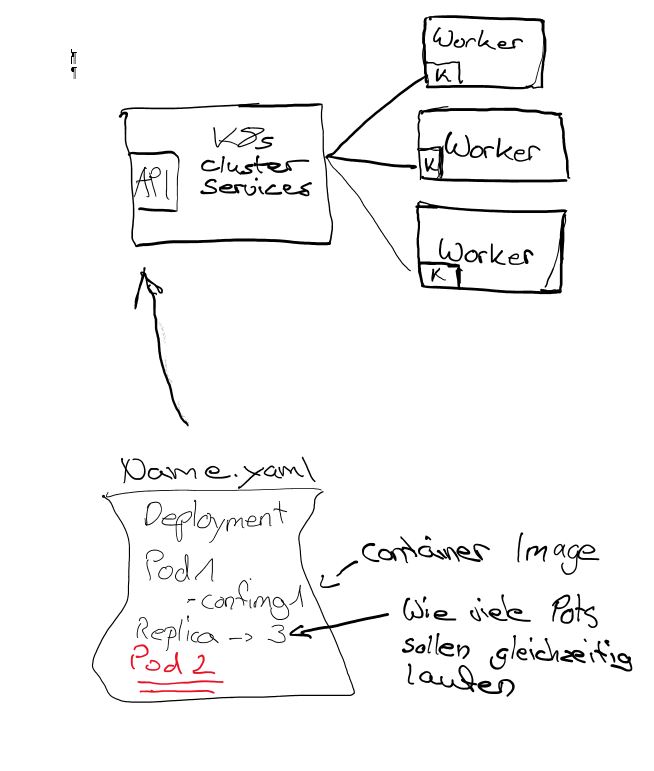 ¶
¶
Worker
K
K8s
cluster
Services
API
K Worker
Worker
K
Name.yaml
Deployment
Pod 1
- confimg 1
Replica -> 3
Pod 2
Container Image
Wie viele Pots
sollen gleichzeitig
laufen